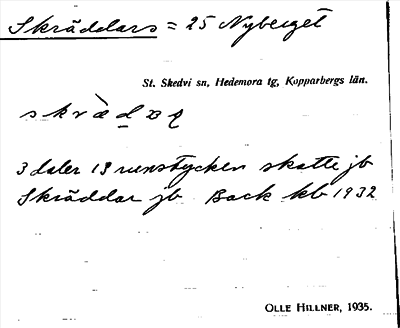 Skräddars = 25 Nyberget
St. Skedvi sn, Hedemora tg, Kopparbergs län.
3 daler 13 runstycken skatte jb
Skräddar jb Back kb 1932
OLLE HILLNER, 1935.